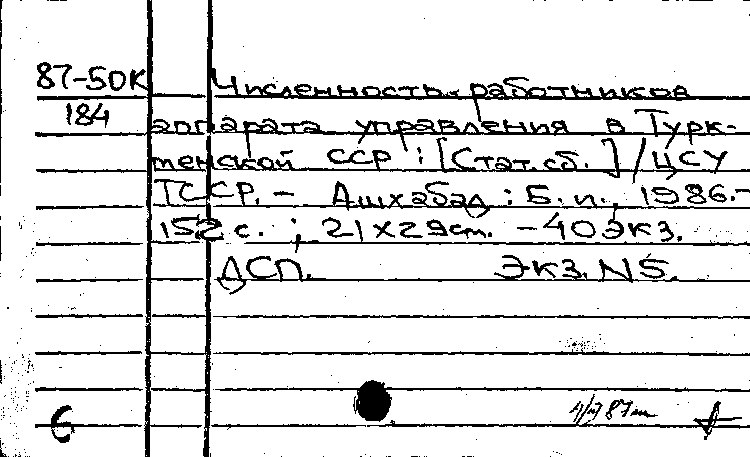 87-50К Численность работников
184 аппарата управления в Турк-
менской ССР : [Стат. сб.] / ЦСУ
ТССР. - Ашхабад : Б. и., 1986. -
152 с. ; 21х29 cm. - 40 экз.
ДСП. Экз. N5.
6